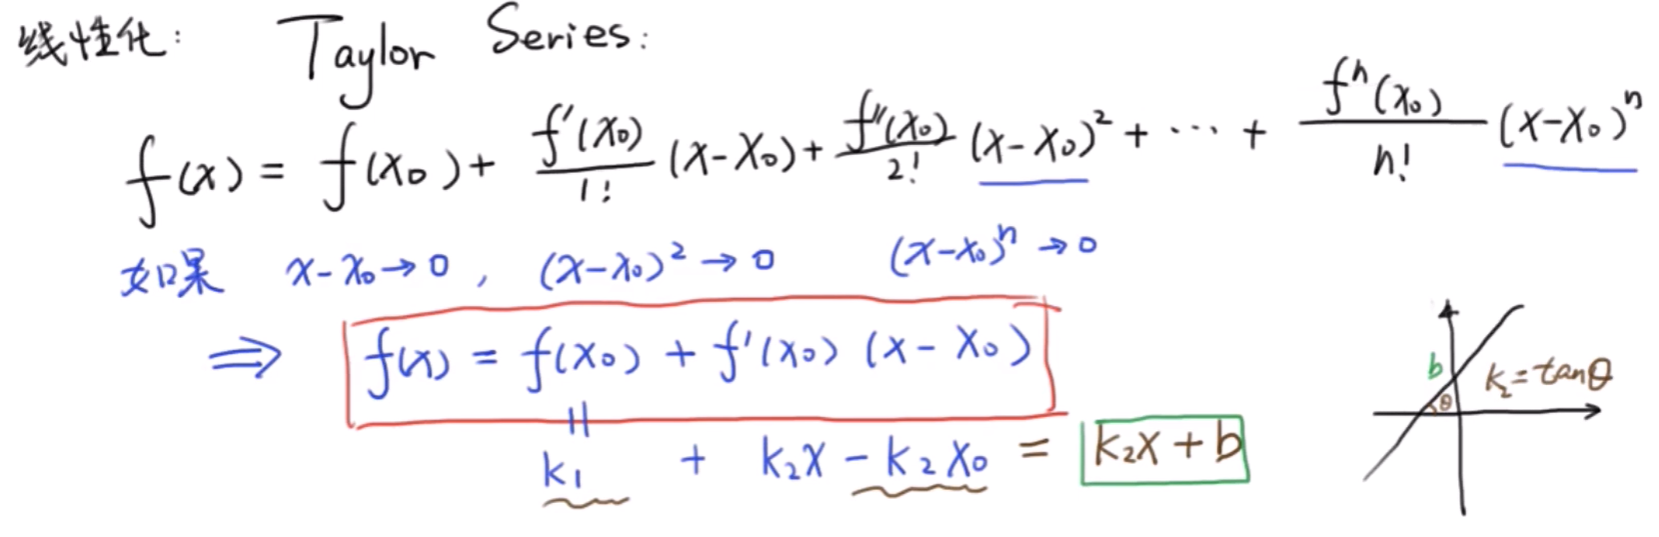 线性化: Taylor Series:
f(x) = f(x₀) + f'(x₀)/1! (x-x₀) + f''(x₀)/2! (x-x₀)² + ⋯ + fⁿ(x₀)/n! (x-x₀)ⁿ
如果 x-x₀→0, (x-x₀)²→0 (x-x₀)ⁿ→0
⇒ f(x) = f(x₀) + f'(x₀) (x-x₀)
k₁ + k₂x - k₂x₀ = k₂x + b
b θ k₂=tanθ